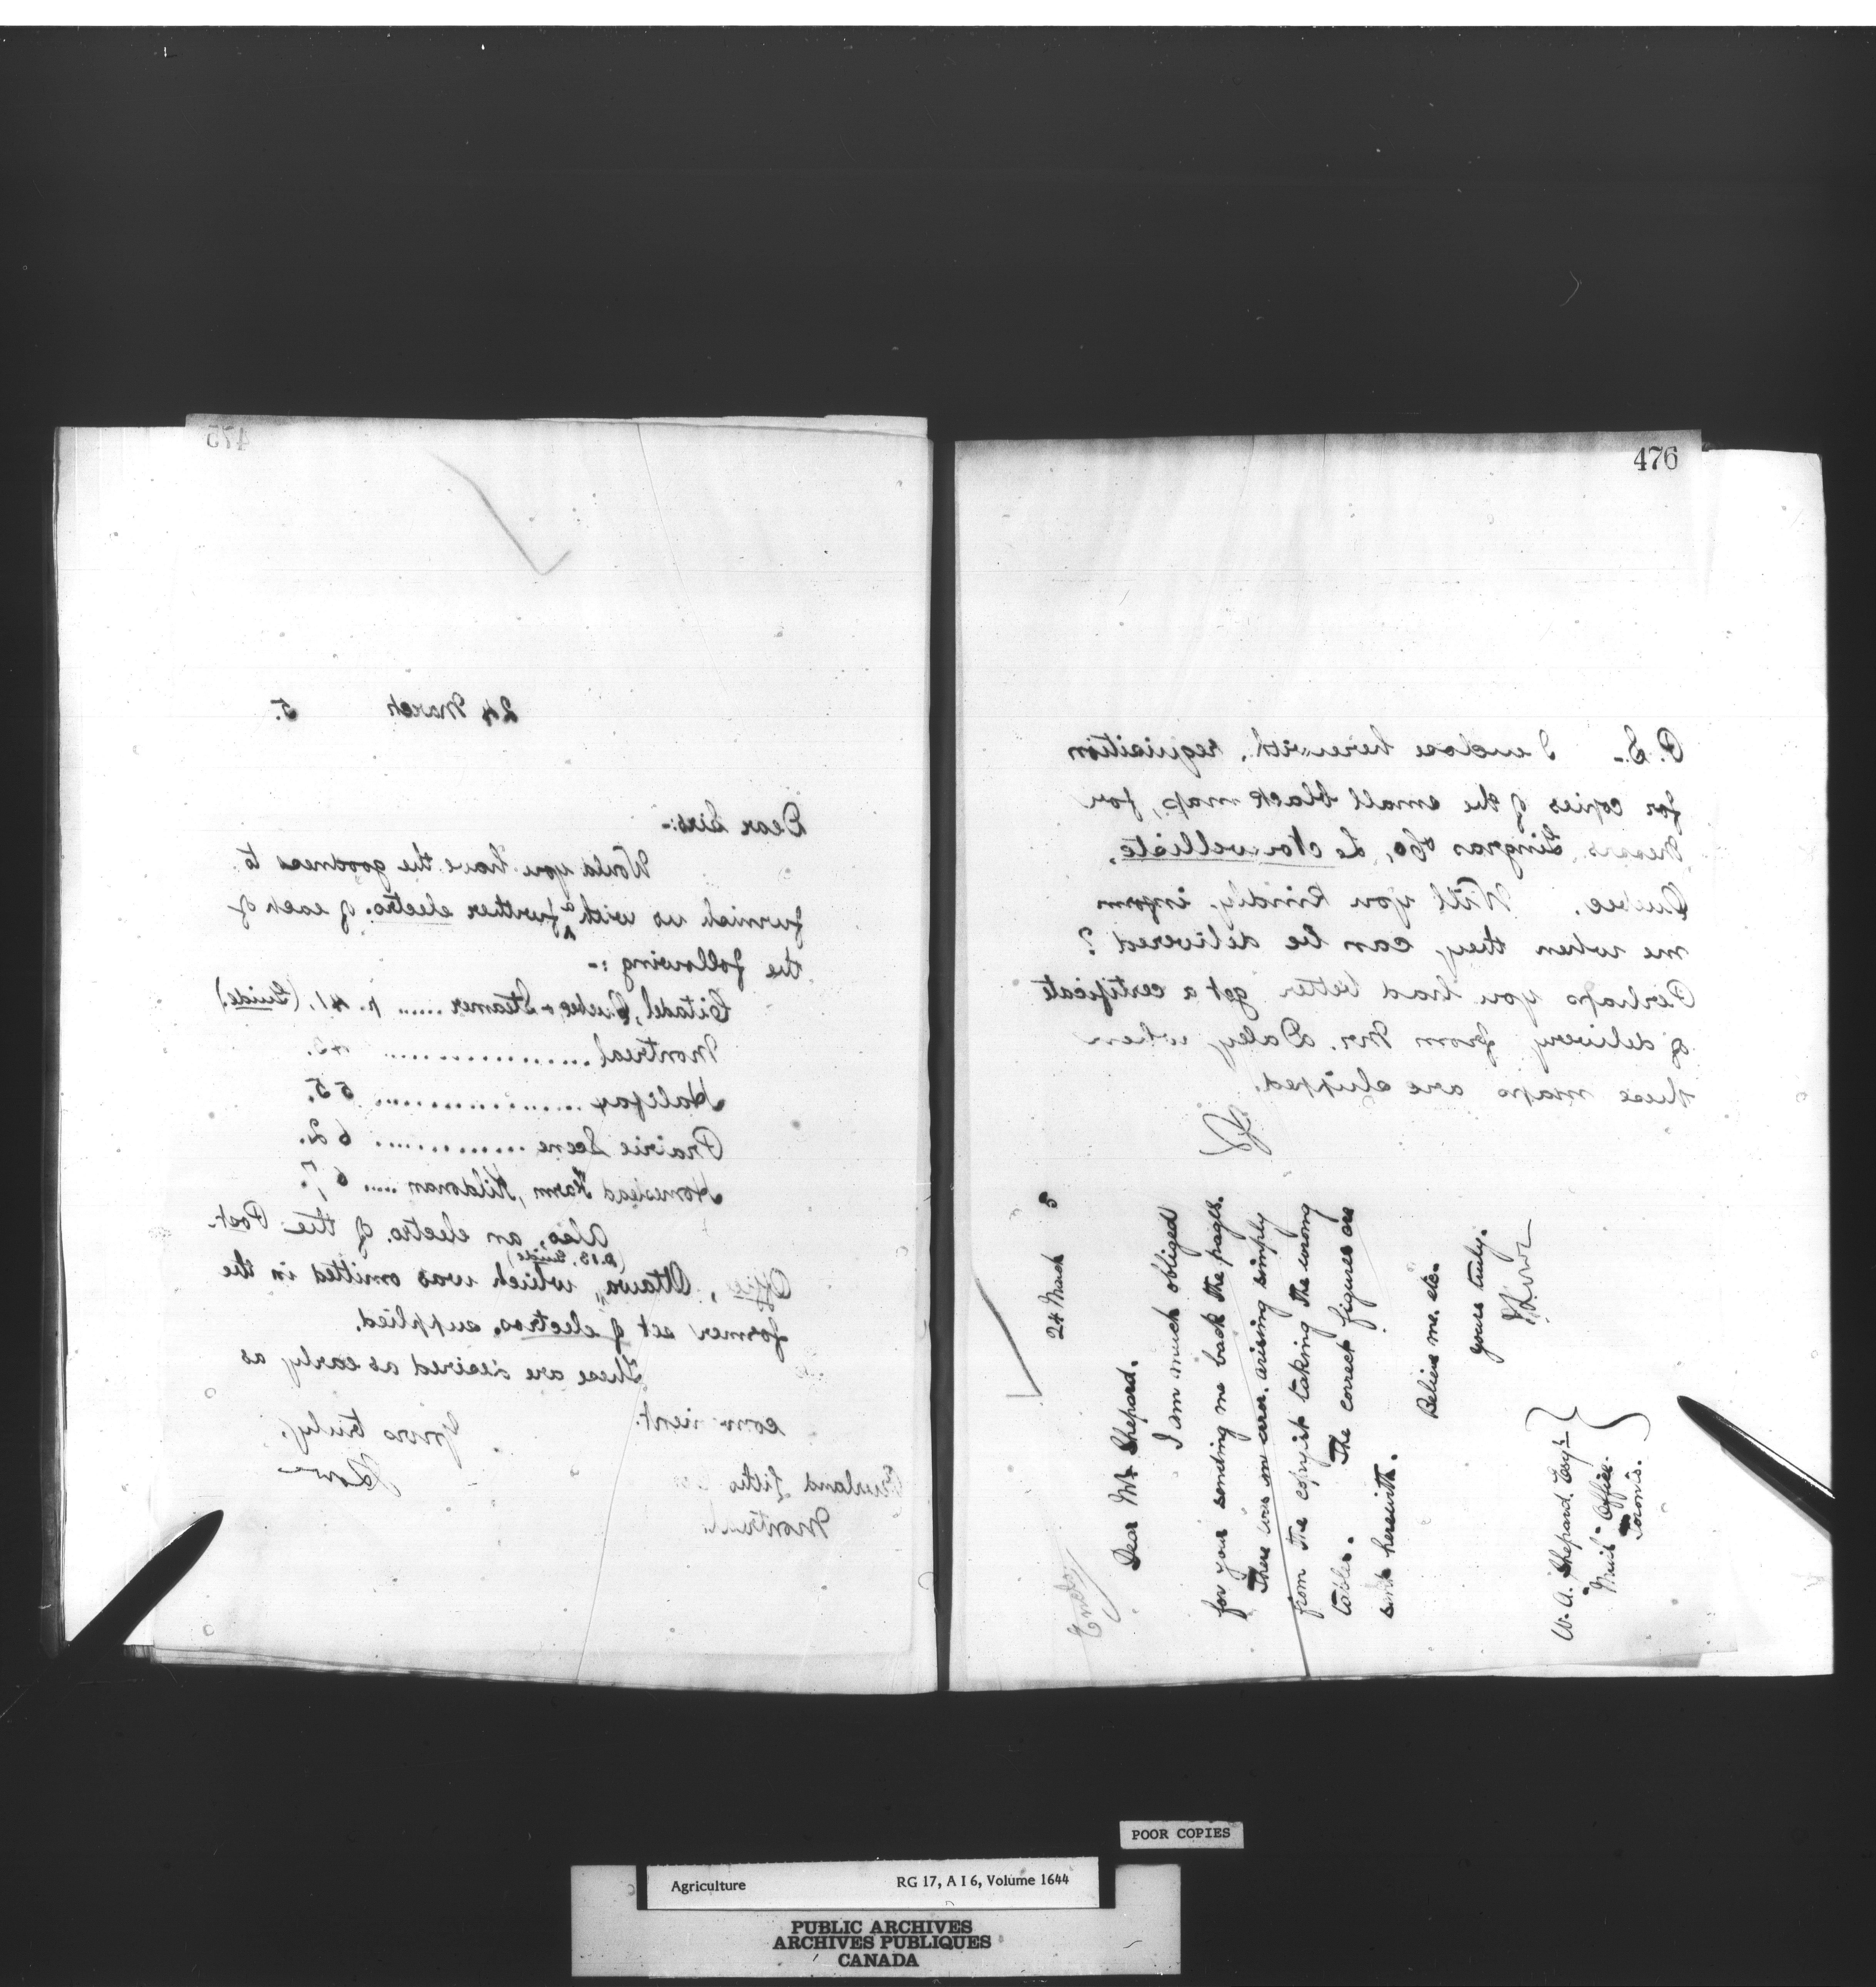 475
24 March 5.
Dear Sirs:-
Would you have the goodness to
furnish us with a further electro. of each of
the following :-
Citadel, Quebec & Steamer ...... p. 41. (Guide)
Montreal ..................
Halifax .................. 55.
Prairie Scene .............. 62.
Homestead Farm, Kildonan ..... 67.
Also, an electro. of the Post
Office, Ottawa, (p. 13. Guide) which was omitted in the
former set of electros. supplied.
These are desired as early as
Yours truly,
Lowe
Litho
Montreal
476
P.S.- I enclose herewith, requisition
for copies of the small black map, for
Messrs Gingras & Co, Le Nouvelliste,
Quebec. Will you kindly inform
me when they can be delivered?
Perhaps you had better get a certificate
of delivery from Mr. Daley when
these maps are shipped.
24 March 5
Dear Mr Shepard.
I am much obliged
for your sending me back the pages.
There was an error, arising simply
from the copyist taking the wrong
tables. The correct figures are
sent herewith.
Believe me. etc.
yours truly.
J Lowe
W. A. Shepard Esqr
"Mail" Office.
Toronto.
POOR COPIES
Agriculture RG 17, A I 6, Volume 1644
PUBLIC ARCHIVES
ARCHIVES PUBLIQUES
CANADA